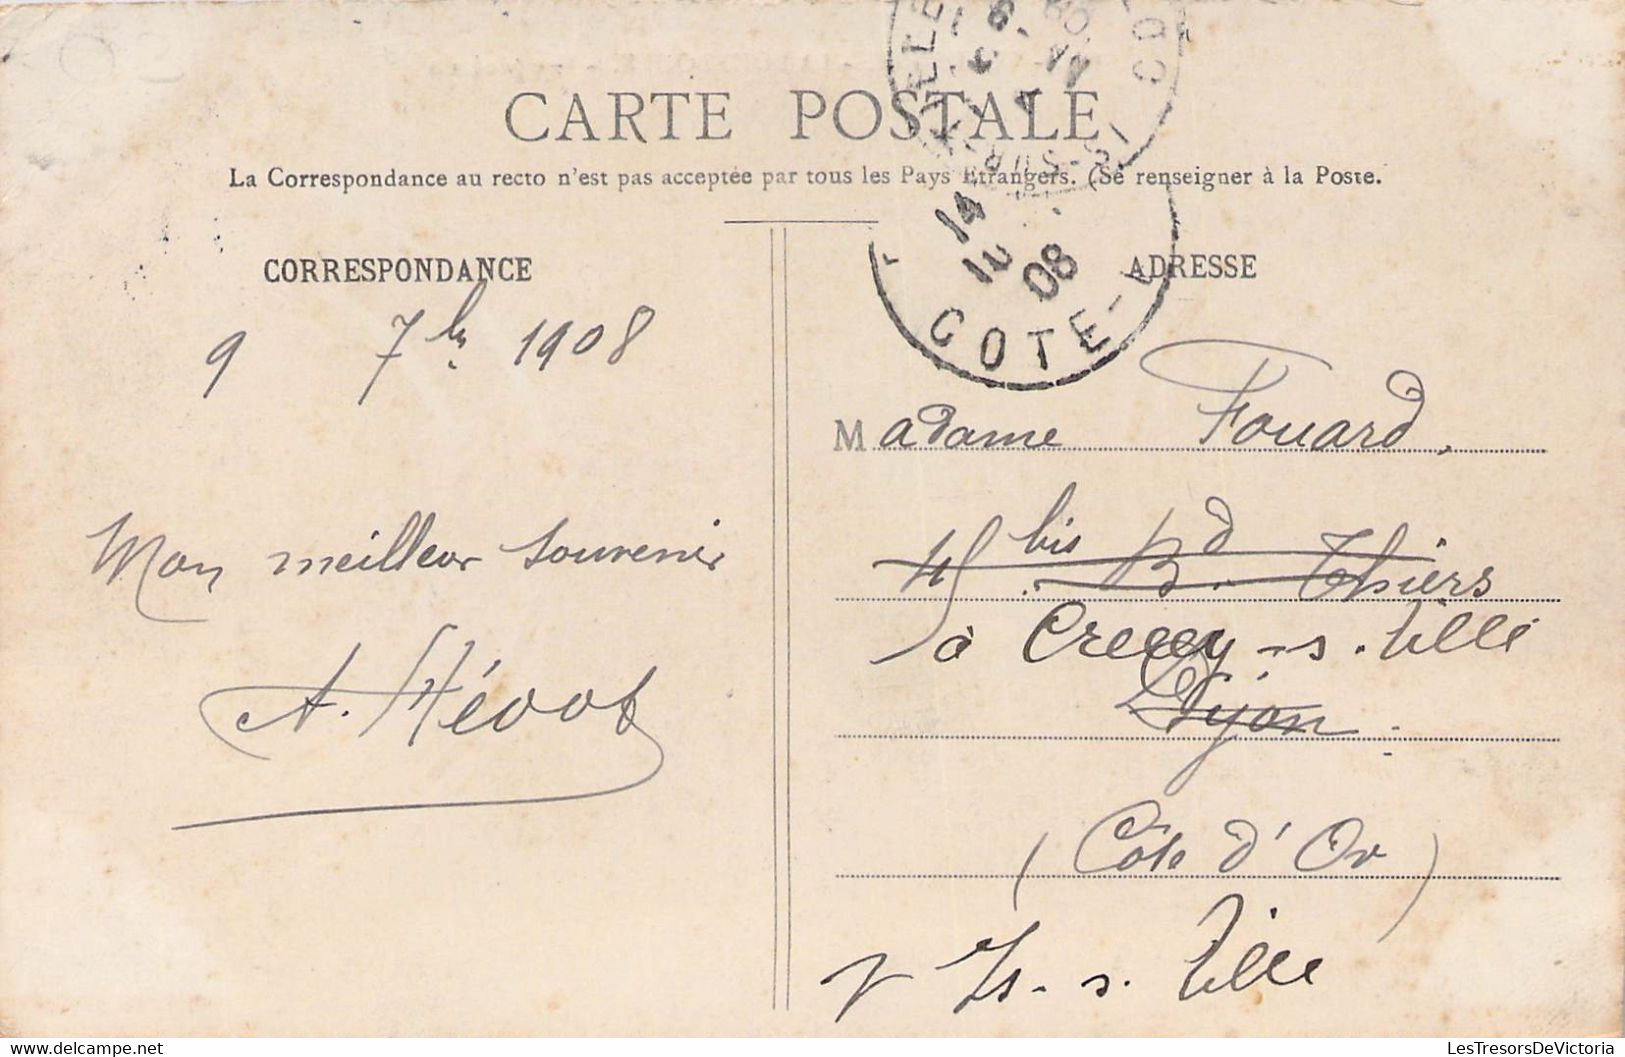 CARTE POSTALE
La Correspondance au recto n'est pas acceptée par tous les Pays Etrangers. (Se renseigner à la Poste.
CORRESPONDANCE
9 7bre 1908
Mon meilleur souvenir
ADRESSE
Madame Fouard,
45 bis Bd Thiers
à Crecey-s.-tille
Dijon
(Côte d'Or)
Is-s.-tille
14
10 08
COTE-
LesTresorsDeVictoria